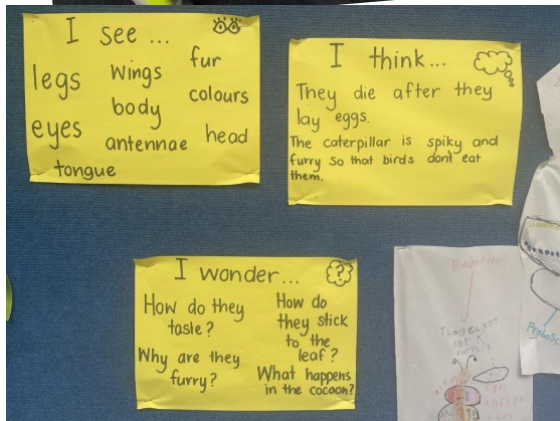 I see ...
legs wings fur
body colours
eyes antennae head
tongue
I think...
They die after they
lay eggs.
The caterpillar is spiky and
furry so that birds dont eat
them.
I wonder...
?
How do they
taste?
Why are they
furry?
How do
they stick
to the
leaf?
What happens
in the cocoon?